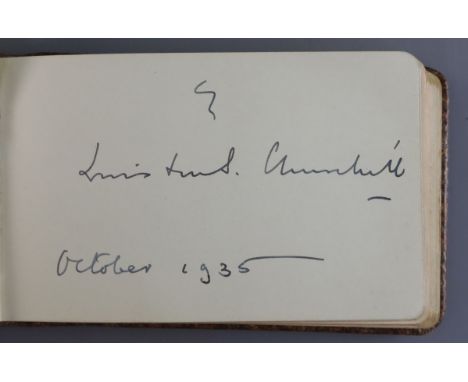 by
Winston S. Churchill
October 1935